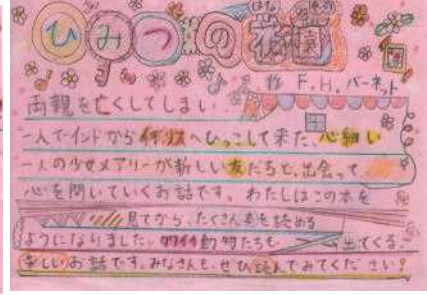 ひみつの花園
作 F.H.バーネット
両親を亡くしてしまい
一人でインドからイギリスへひっこして来た、心細い
一人の少女メアリーが新しい友だちと、出会って
心を開いていくお話です。わたしはこの本を
見てから、たくさん本を読める
ようになりました。動物たちも出てくる、
楽しいお話です。みなさんも、ぜひ読んでみてください!